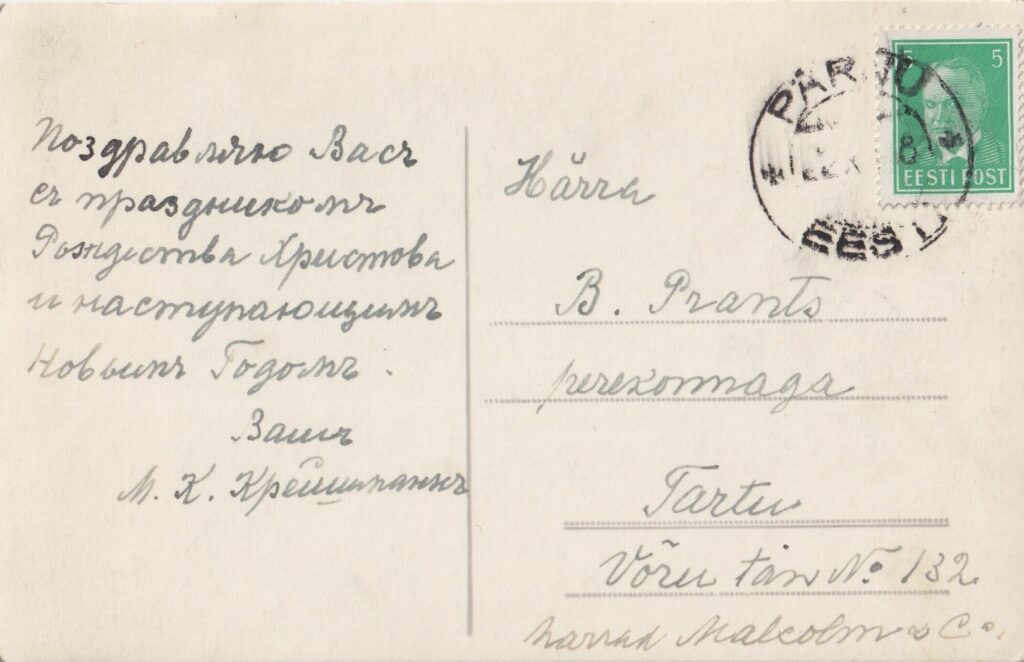 Поздравляю Васъ
съ праздникомъ
Рождества Христова
и наступающимъ
Новымъ Годомъ.
Вашъ
М. К. Крейшманъ
5 5
EESTI POST
PÄRNU
EESTI
Härra
B. Prants
perekonnaga
Tartu
Võru tän No. 132.
härrad Malcolm & Co.